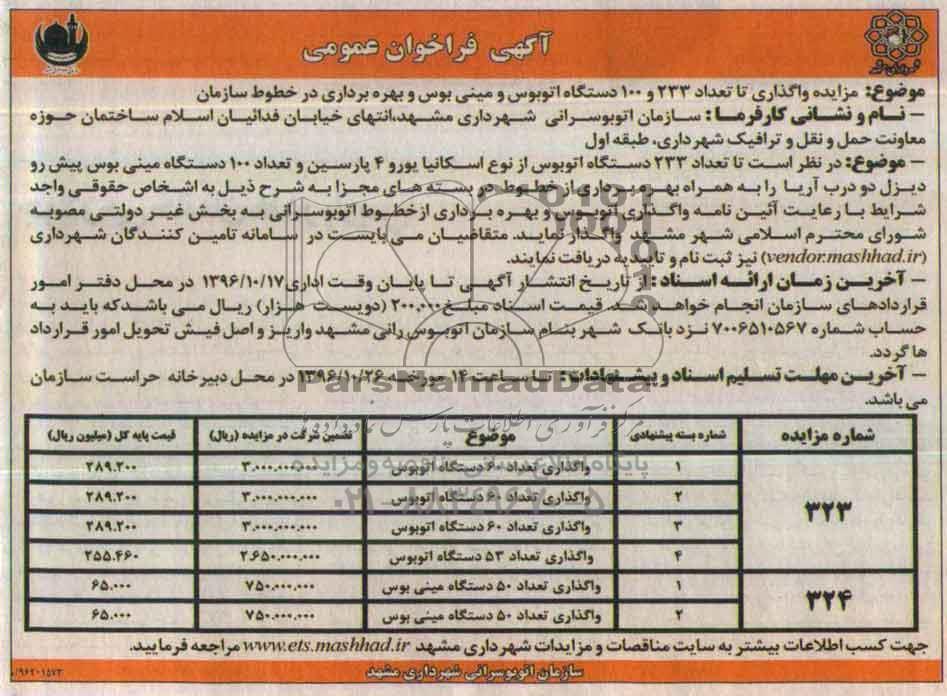 آگهی فراخوان عمومی
موضوع: مزایده واگذاری تا تعداد ۲۳۳ و ۱۰۰ دستگاه اتوبوس و مینی بوس و بهره برداری در خطوط سازمان
– نام و نشانی کارفرما: سازمان اتوبوسرانی شهرداری مشهد، انتهای خیابان فدائیان اسلام ساختمان حوزه
معاونت حمل و نقل و ترافیک شهرداری، طبقه اول
– موضوع: در نظر است تا تعداد ۲۳۳ دستگاه اتوبوس از نوع اسکانیا یورو ۴ پارسین و تعداد ۱۰۰ دستگاه مینی بوس پیش رو
دیزل دو درب آریا را به همراه بهره برداری از خطوط در بسته های مجزا به شرح ذیل به اشخاص حقوقی واجد
شرایط با رعایت آئین نامه واگذاری اتوبوس و بهره برداری از خطوط اتوبوسرانی به بخش غیر دولتی مصوبه
شورای محترم اسلامی شهر مشهد واگذار نماید. متقاضیان می بایست در سامانه تامین کنندگان شهرداری
(vendor.mashhad.ir) نیز ثبت نام و تاییدیه دریافت نمایند.
– آخرین زمان ارائه اسناد: از تاریخ انتشار آگهی تا پایان وقت اداری ۱۳۹۶/۱۰/۱۷ در محل دفتر امور
قراردادهای سازمان انجام خواهد شد. قیمت اسناد مبلغ ۲۰۰،۰۰۰ (دویست هزار) ریال می باشد که باید به
حساب شماره ۷۰۰۶۵۱۰۵۶۷ نزد بانک شهر بنام سازمان اتوبوس رانی مشهد واریز و اصل فیش تحویل امور قرارداد
ها گردد.
– آخرین مهلت تسلیم اسناد و پیشنهادات: تا ساعت ۱۴ مورخه ۱۳۹۶/۱۰/۲۶ در محل دبیرخانه حراست سازمان
می باشد.
شماره مزایده شماره بسته پیشنهادی موضوع تضمین شرکت در مزایده (ریال) قیمت پایه کل (میلیون ریال)
۳۲۳ ۱ واگذاری تعداد ۶۰ دستگاه اتوبوس ۳.۰۰۰.۰۰۰.۰۰۰ ۲۸۹.۲۰۰
۲ واگذاری تعداد ۶۰ دستگاه اتوبوس ۳.۰۰۰.۰۰۰.۰۰۰ ۲۸۹.۲۰۰
۳ واگذاری تعداد ۶۰ دستگاه اتوبوس ۳.۰۰۰.۰۰۰.۰۰۰ ۲۸۹.۲۰۰
۴ واگذاری تعداد ۵۳ دستگاه اتوبوس ۲.۶۵۰.۰۰۰.۰۰۰ ۲۵۵.۴۶۰
۳۲۴ ۱ واگذاری تعداد ۵۰ دستگاه مینی بوس ۷۵۰.۰۰۰.۰۰۰ ۶۵.۰۰۰
۲ واگذاری تعداد ۵۰ دستگاه مینی بوس ۷۵۰.۰۰۰.۰۰۰ ۶۵.۰۰۰
جهت کسب اطلاعات بیشتر به سایت مناقصات و مزایدات شهرداری مشهد www.ets.mashhad.ir مراجعه فرمایید.
سازمان اتوبوسرانی شهرداری مشهد
۹۶۲۰۱۵۷۳/
ParsNamadData
مرکز فرآوری اطلاعات پارس نماد داده ها
پایگاه اطلاع رسانی مناقصه و مزایده